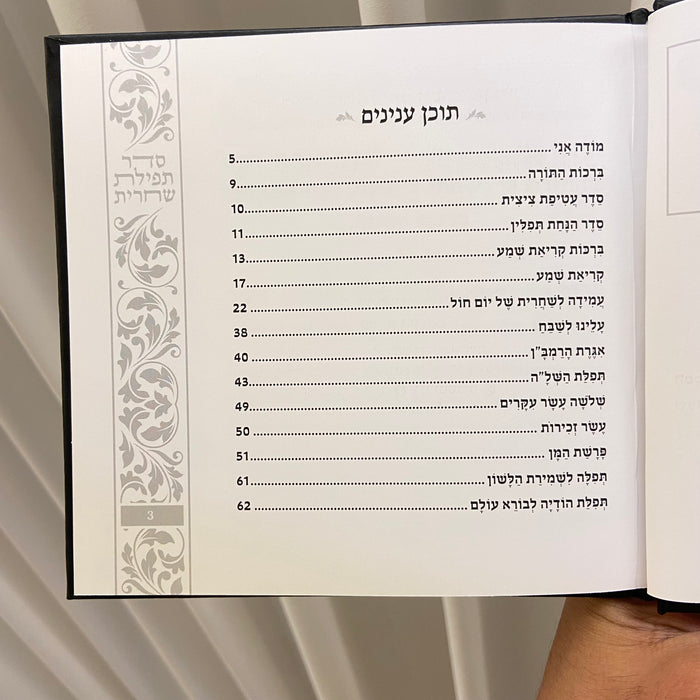 תוכן ענינים
מוֹדֶה אֲנִי.......................................................................5
בִּרְכוֹת הַתּוֹרָה.................................................................9
סֵדֶר עֲטִיפַת צִיצִית...........................................................10
סֵדֶר הַנָּחַת תְּפִלִּין............................................................11
בִּרְכוֹת קְרִיאַת שְׁמַע..........................................................13
קְרִיאַת שְׁמַע...................................................................17
עֲמִידָה לְשַׁחֲרִית שֶׁל יוֹם חוֹל................................................22
עָלֵינוּ לְשַׁבֵּחַ...................................................................38
אִגֶּרֶת הָרַמְבָּ"ן...................................................................40
תְּפִלַּת הַשְּׁלָ"ה...................................................................43
שְׁלֹשָׁה עָשָׂר עִקָּרִים.........................................................49
עֶשֶׂר זְכִירוֹת...................................................................50
פָּרָשַׁת הַמָּן...................................................................51
תְּפִלָּה לִשְׁמִירַת הַלָּשׁוֹן.......................................................61
תְּפִלַּת הוֹדָיָה לְבוֹרֵא עוֹלָם...................................................62
סדר
תפילת
שחרית
3